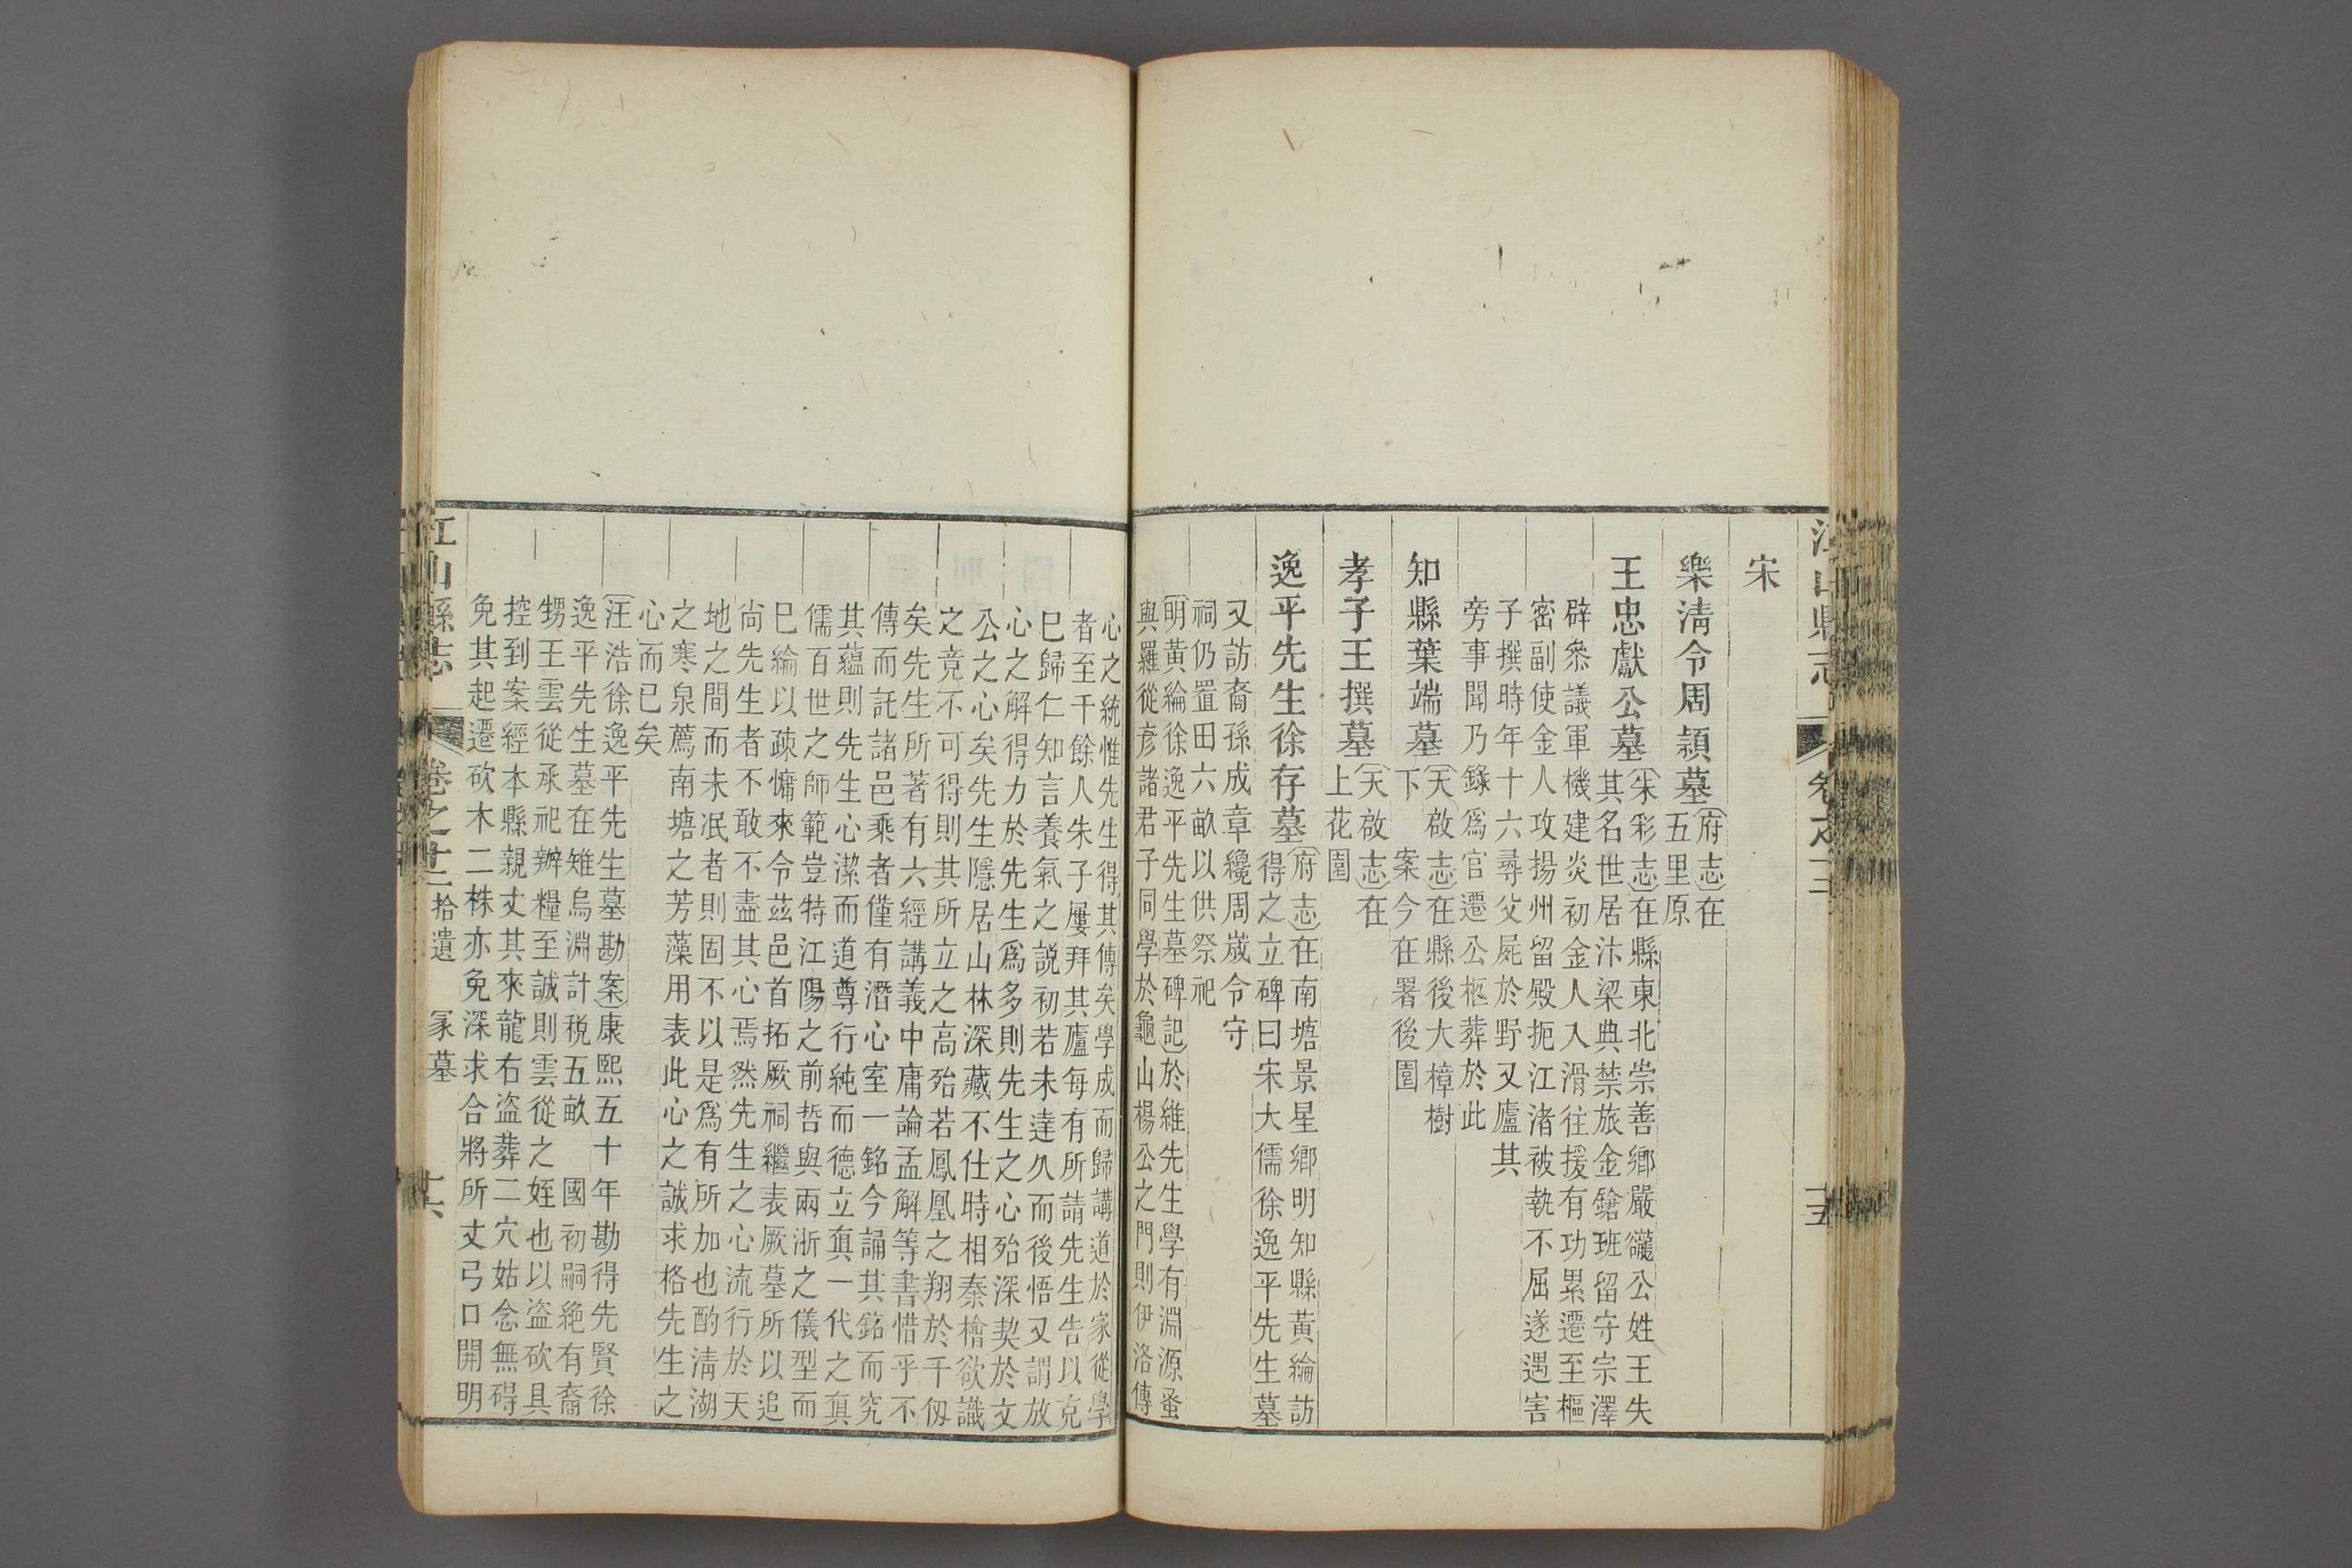 宋
樂清令周頴墓
府志在
五里原
王忠獻公墓
朱彩志在縣東北崇善鄉嚴巃公姓王失
其名世居汴梁典禁旅金鎗班留守宗澤
辟叅議軍機建炎初金人入滑往援有功累遷至樞
密副使金人攻揚州留殿扼江渚被執不屈遂遇害
子撰時年十六尋父屍於野又廬其
旁事聞乃錄爲官遷公柩葬於此
知縣葉端墓
天啟志在縣後大樟樹
下 案今在署後圍
孝子王撰墓
天啟志在
上花園
逸平先生徐存墓
府志在南塘景星鄉明知縣黃綸訪
得之立碑曰宋大儒徐逸平先生墓
又訪裔孫成章纔周嵗令守
祠仍置田六畝以供祭祀
明黃綸徐逸平先生墓碑記於維先生學有淵源蚤
與羅從彥諸君子同學於龜山楊公之門則伊洛傳
心之統惟先生得其傳矣學成而歸講道於家從學
者至千餘人朱子屢拜其廬每有所請先生告以克
巳歸仁知言養氣之説初若未達久而後悟又謂放
心之解得力於先生爲多則先生之心殆深契於文
公之心矣先生隱居山林深藏不仕時相秦檜欲識
之竟不可得則其所立之高殆若鳳凰之翔於千仭
矣先生所著有六經講義中庸論孟解等書惜乎不
傳而託諸邑乘者僅有潛心室一銘今誦其銘而究
其蘊則先生心潔而道尊行純而德立眞一代之眞
儒百世之師範豈特江陽之前哲與兩浙之儀型而
巳綸以疎慵來令茲邑首拓厥祠繼表厥墓所以追
尚先生者不敢不盡其心焉然先生之心流行於天
地之間而未泯者則固不以是爲有所加也酌淸湖
之寒泉薦南塘之芳藻用表此心之誠求格先生之
心而已矣
汪浩徐逸平先生墓勘案康熙五十年勘得先賢徐
逸平先生墓在雉烏淵計税五畝 國初嗣絶有裔
甥王雲從承祀辦糧至誠則雲從之姪也以盜砍具
控到案經本縣親丈其來龍右盜葬二穴姑念無碍
免其起遷砍木二株亦免深求合將所丈弓口開明
江山縣志 卷之十二 拾遺 冢墓 十六